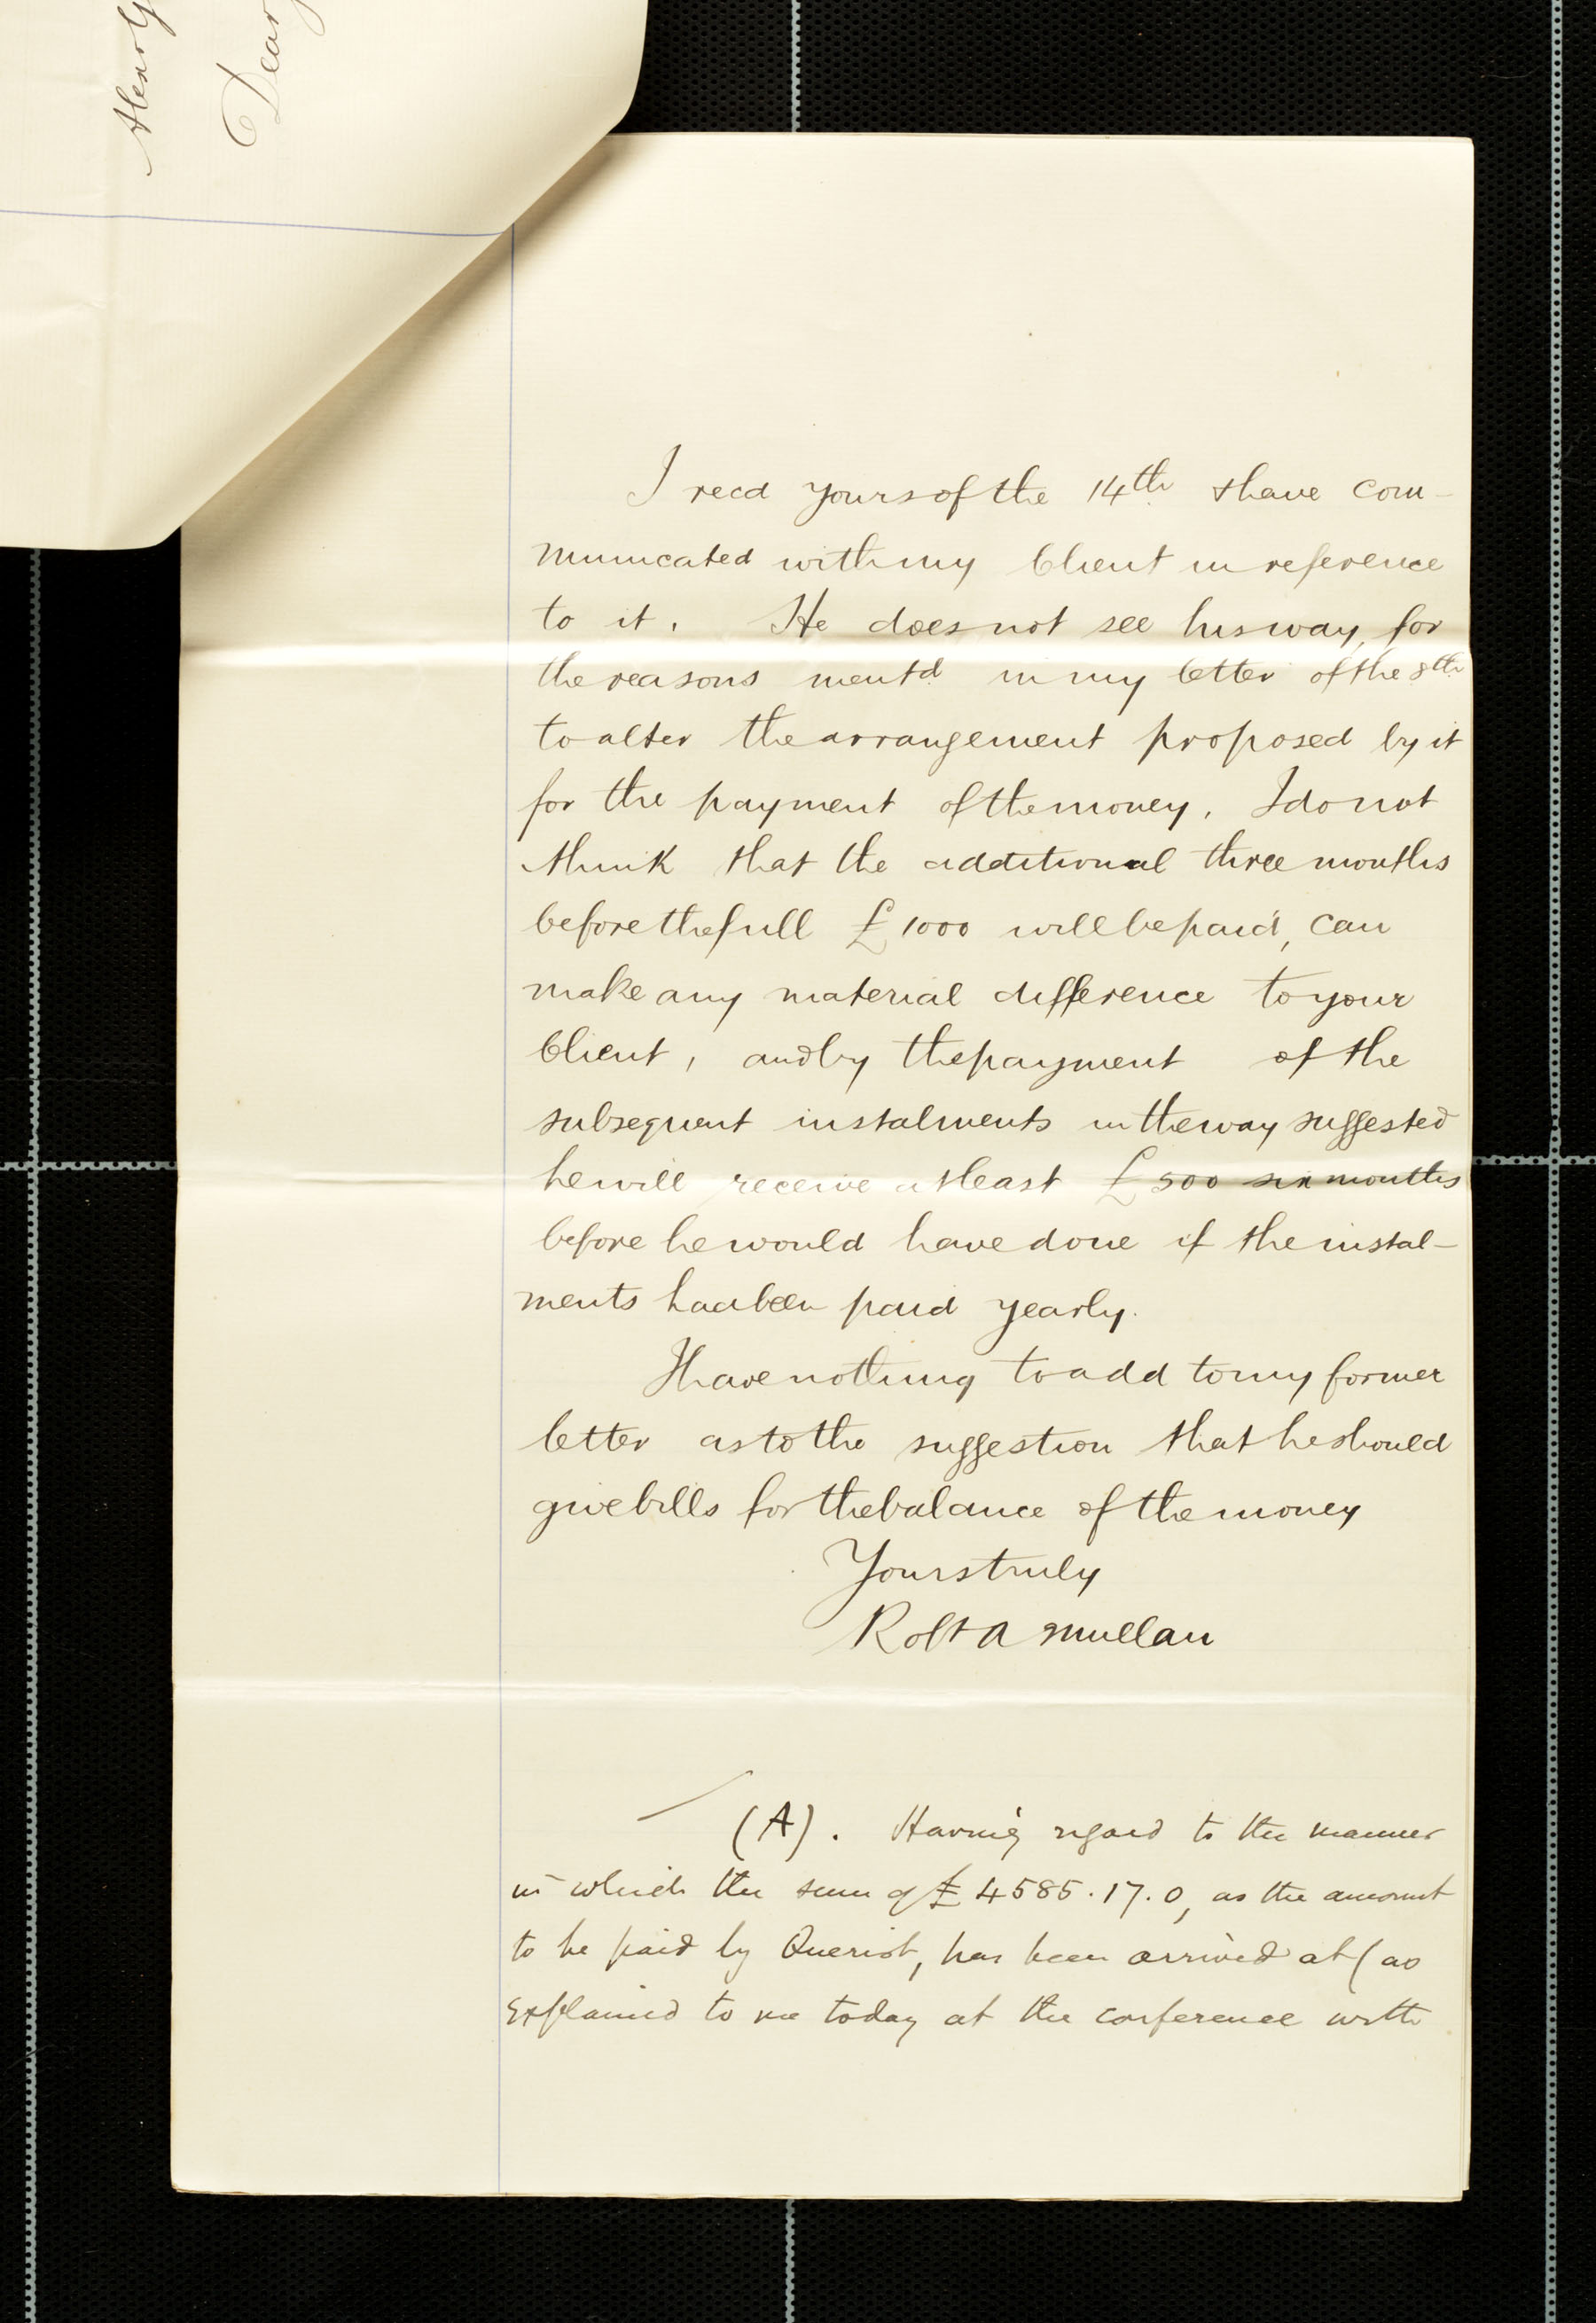 Henry
Dear
I recd yours of the 14th & have com-
municated with my Client in reference
to it. He does not see his way, for
the reasons mentd in my letter of the 8th
to alter the arrangement proposed by it
for the payment of the money. I do not
think that the additional three months
before the full £1000 will be paid, can
make any material difference to your
Client, and by the payment of the
subsequent instalments in the way suggested
he will receive at least £500 six months
before he would have done if the instal-
ments had been paid yearly.
I have nothing to add to my former
letter as to the suggestion that he should
give bills for the balance of the money
Yours truly
Robt A Mullan
(A). Having regard to the manner
in which the sum of £4585.17.0, as the amount
to be paid by Querist, has been arrived at (as
explained to me today at the conference with